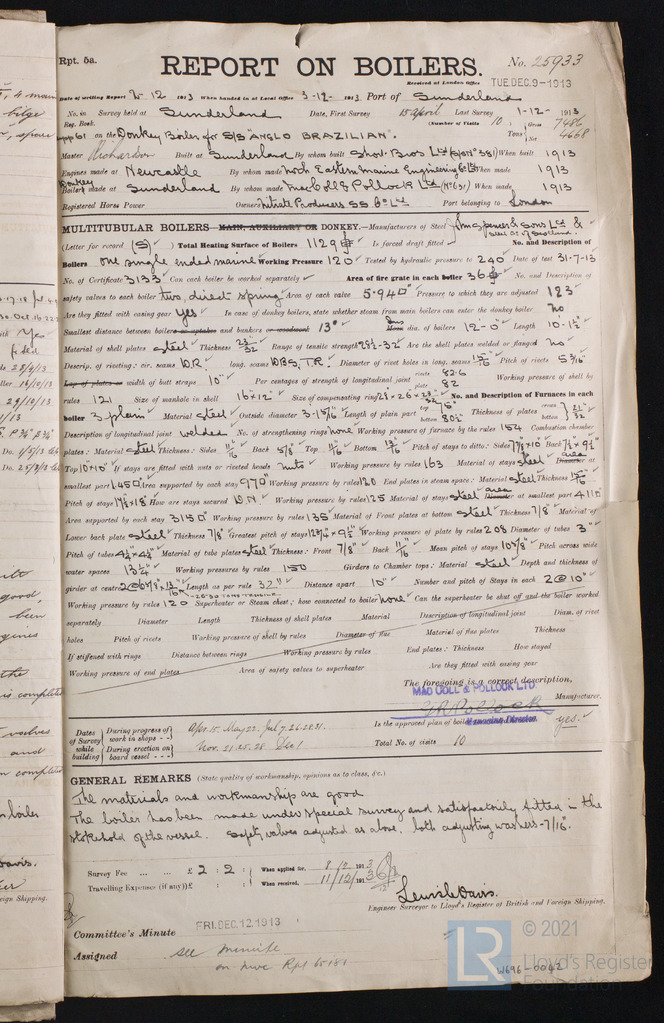 Rpt. 5a.
REPORT ON BOILERS.
No. 25933
Received at London Office TUE. DEC. 9 - 1913
Date of writing Report 2-12 1913 When handed in at Local Office 3-12- 1913 Port of Sunderland
No. in Reg. Book. Survey held at Sunderland Date, First Survey 15 April Last Survey 1-12- 1913
(Number of Visits 10) Gross 7486
61 on the Donkey Boiler for S/S "ANGLO BRAZILIAN". Tons Net 4668
Master Richardson Built at Sunderland By whom built Short Bros Ltd (S/D No 381) When built 1913
Engines made at Newcastle By whom made North Eastern Marine Engineering Co Ltd When made 1913
Donkey Boilers made at Sunderland By whom made MacColl & Pollock Ltd (No 631) When made 1913
Registered Horse Power Owners Nitrate Producers SS Co Ltd Port belonging to London
MULTITUBULAR BOILERS MAIN, AUXILIARY OR DONKEY.—Manufacturers of Steel John Spencer & Sons Ltd &
Steel Co. of Scotland.
(Letter for record (S)) Total Heating Surface of Boilers 1129 Is forced draft fitted No. and Description of
Boilers One single ended marine Working Pressure 120 Tested by hydraulic pressure to 240 Date of test 31-7-13
No. of Certificate 3133 Can each boiler be worked separately Area of fire grate in each boiler 36 No. and Description of
safety valves to each boiler two, direct spring Area of each valve 5.940" Pressure to which they are adjusted 123
Are they fitted with easing gear Yes In case of donkey boilers, state whether steam from main boilers can enter the donkey boiler No
Smallest distance between boilers or uptakes and bunkers or woodwork 13" Mean dia. of boilers 12'-0" Length 10'-1½"
Material of shell plates Steel Thickness 23/32 Range of tensile strength 28½-32 Are the shell plates welded or flanged No
Descrip. of riveting: cir. seams D.R. long. seams DBS, T.R. Diameter of rivet holes in long. seams 15/16 Pitch of rivets 5 3/16"
Lap of plates or width of butt straps 10" Per centages of strength of longitudinal joint rivets 82.6 plate 82 Working pressure of shell by
rules 121 Size of manhole in shell 16" x 12" Size of compensating ring No. and Description of Furnaces in each
boiler 3 plain Material Steel Outside diameter 3'-1 5/16" Length of plain part top 75" bottom 80½" Thickness of plates crown bottom 21/32"
Description of longitudinal joint welded No. of strengthening rings None Working pressure of furnace by the rules 154 Combustion chamber
plates: Material Steel Thickness: Sides 11/16" Back 5/8" Top 11/16" Bottom 13/16" Pitch of stays to ditto: Sides 7⅞" x 10" Back 7⅞" x 9½"
Top 10" x 10" If stays are fitted with nuts or riveted heads nuts Working pressure by rules 163 Material of stays Steel area Diameter at
smallest part 1.45" Area supported by each stay 97" Working pressure by rules 120 End plates in steam space: Material Steel Thickness 15/16"
Pitch of stays 17½ x 18" How are stays secured D.N. Working pressure by rules 125 Material of stays Steel area Diameter at smallest part 4.11"
Area supported by each stay 315" Working pressure by rules 135 Material of Front plates at bottom Steel Thickness 7/8" Material of
Lower back plate Steel Thickness 7/8" Greatest pitch of stays Working pressure of plate by rules 208 Diameter of tubes 3"
Pitch of tubes 4¼" x 4¼" Material of tube plates Steel Thickness: Front 7/8" Back 11/16" Mean pitch of stays 10⅝" Pitch across wide
water spaces 13¼" Working pressures by rules 150 Girders to Chamber tops: Material Steel Depth and thickness of
girder at centre Length as per rule 32" Distance apart 10" Number and pitch of Stays in each 2 @ 10"
Working pressure by rules 120 Superheater or Steam chest; how connected to boiler None Can the superheater be shut off and the boiler worked
separately Diameter Length Thickness of shell plates Material Description of longitudinal joint Diam. of rivet
holes Pitch of rivets Working pressure of shell by rules Diameter of flue Material of flue plates Thickness
If stiffened with rings Distance between rings Working pressure by rules End plates: Thickness How stayed
Working pressure of end plates Area of safety valves to superheater Are they fitted with easing gear
The foregoing is a correct description,
MAC COLL & POLLOCK LTD.
Manufacturer.
Managing Director.
Dates of Survey while building During progress of work in shops - - Apr. 15. May 22. July 7. 26. 28. 31.
During erection on board vessel - - Nov. 21. 25. 28 Dec 1
Is the approved plan of boiler yes.
Total No. of visits 10
GENERAL REMARKS (State quality of workmanship, opinions as to class, &c.)
The materials and workmanship are good
The boiler has been made under special survey and satisfactorily fitted in the
stokehold of the vessel. Safety valves adjusted as above, both adjusting washers - 7/16".
Survey Fee ... £ 2 : 2 : When applied for, 8/12 1913
Travelling Expenses (if any) £ : : When received, 11/12/1913
Lewis Davis.
Engineer Surveyor to Lloyd's Register of British and Foreign Shipping.
Committee's Minute FRI. DEC. 12. 1913
Assigned see minute
on Mwe Rpt
© 2021
LR Lloyd's Register Foundation
W696-0042